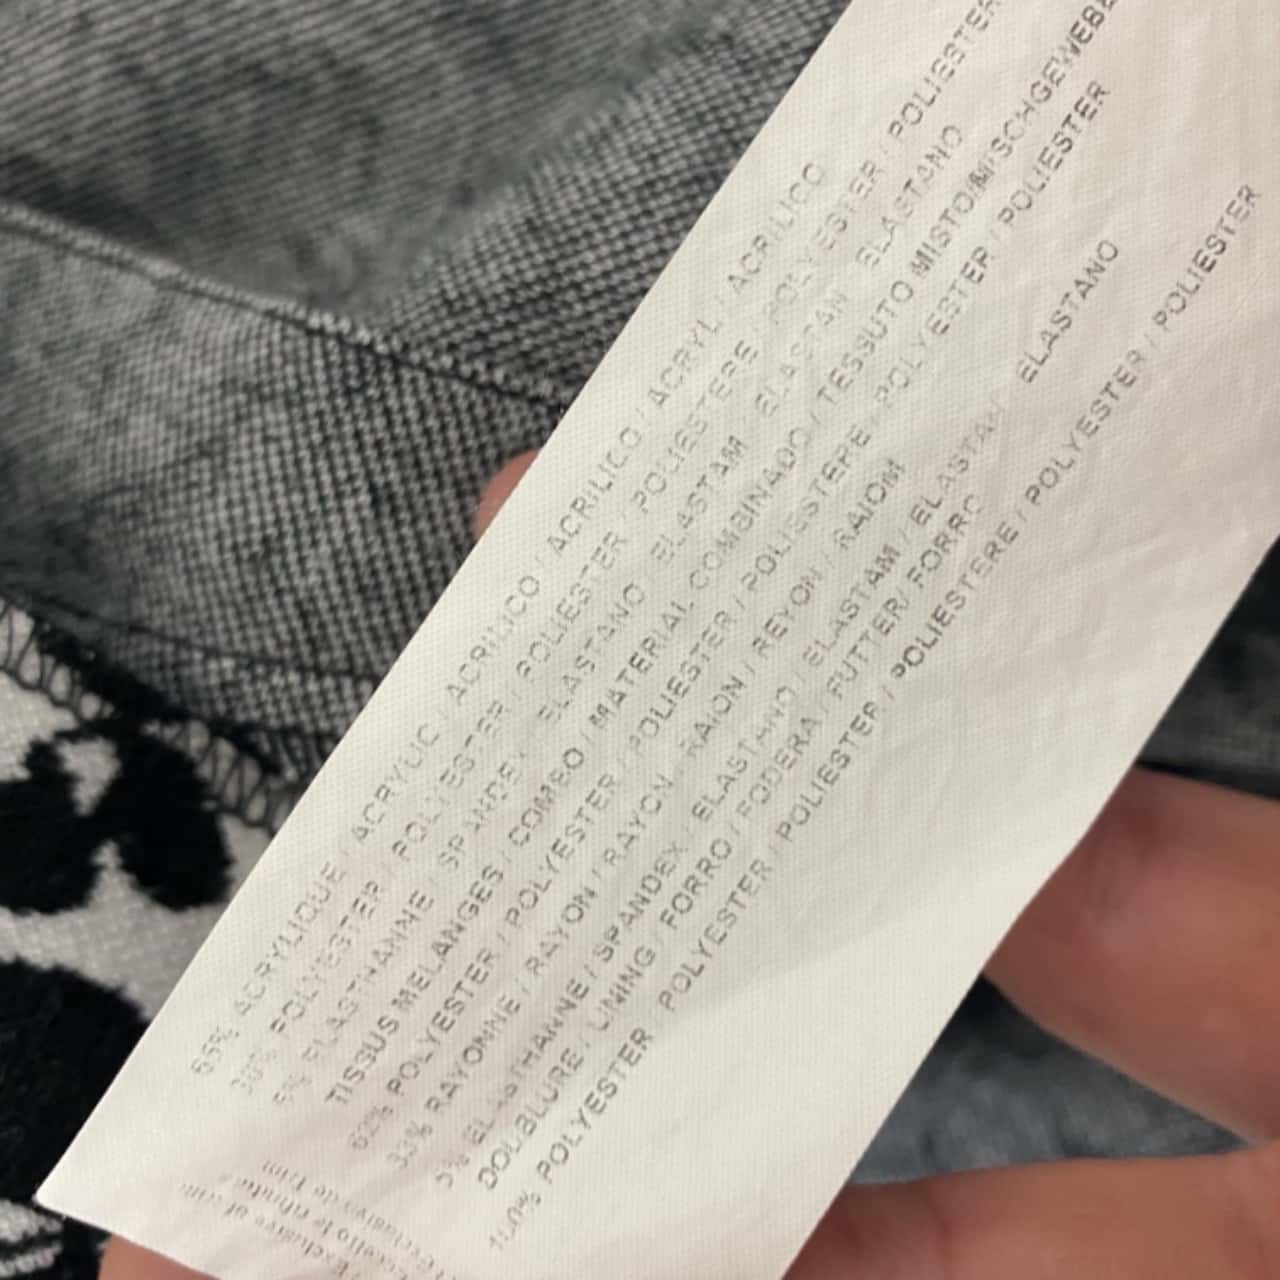 65% ACRYLIQUE / ACRYLIC / ACRILICO / ACRILICO / ACRYL / ACRILICO
30% POLYESTER / POLYESTER / POLIESTER / POLIESTERE / POLYESTER / POLIESTER
5% ELASTHANNE / SPANDEX / ELASTANO / ELASTAM / ELASTAN / ELASTANO
TISSUS MELANGES / COMBO / MATERIAL COMBINADO / TESSUTO MISTO/MISCHGEWEBE
62% POLYESTER / POLYESTER / POLIESTER / POLIESTERE / POLYESTER / POLIESTER
33% RAYONNE / RAYON / RAYON / RAION / REYON / RAIOM
5% ELASTHANNE / SPANDEX / ELASTANO / ELASTAM / ELASTAN / ELASTANO
DOUBLURE / LINING / FORRO / FODERA / FUTTER/ FORRO
100% POLYESTER / POLYESTER / POLIESTER / POLIESTERE / POLYESTER / POLIESTER